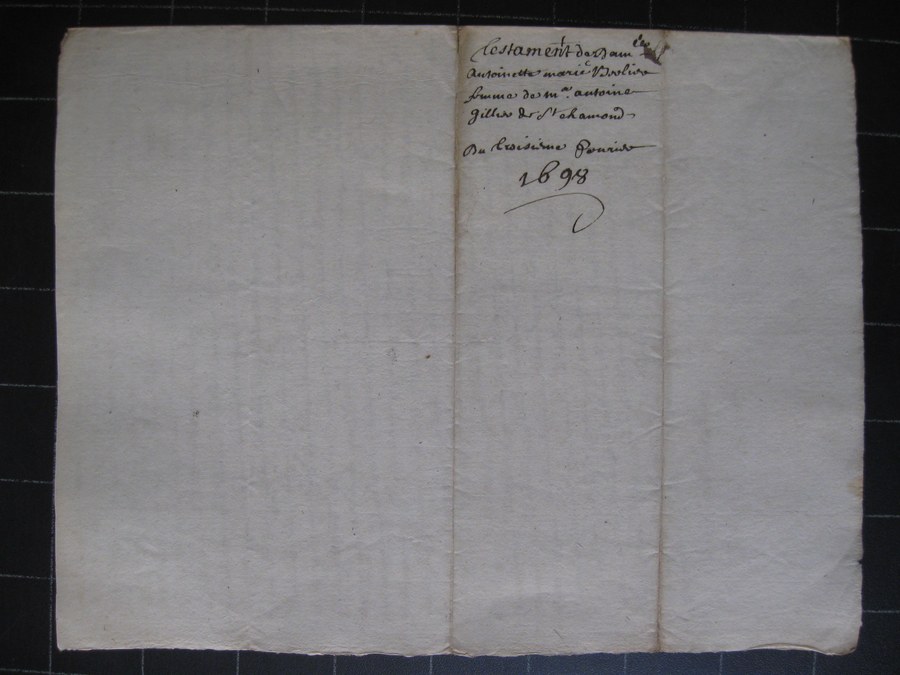 Testament de dam.lle
Antoinette marie
femme de m.re antoine
gillier de St chamond
Du troisieme feurier
1698